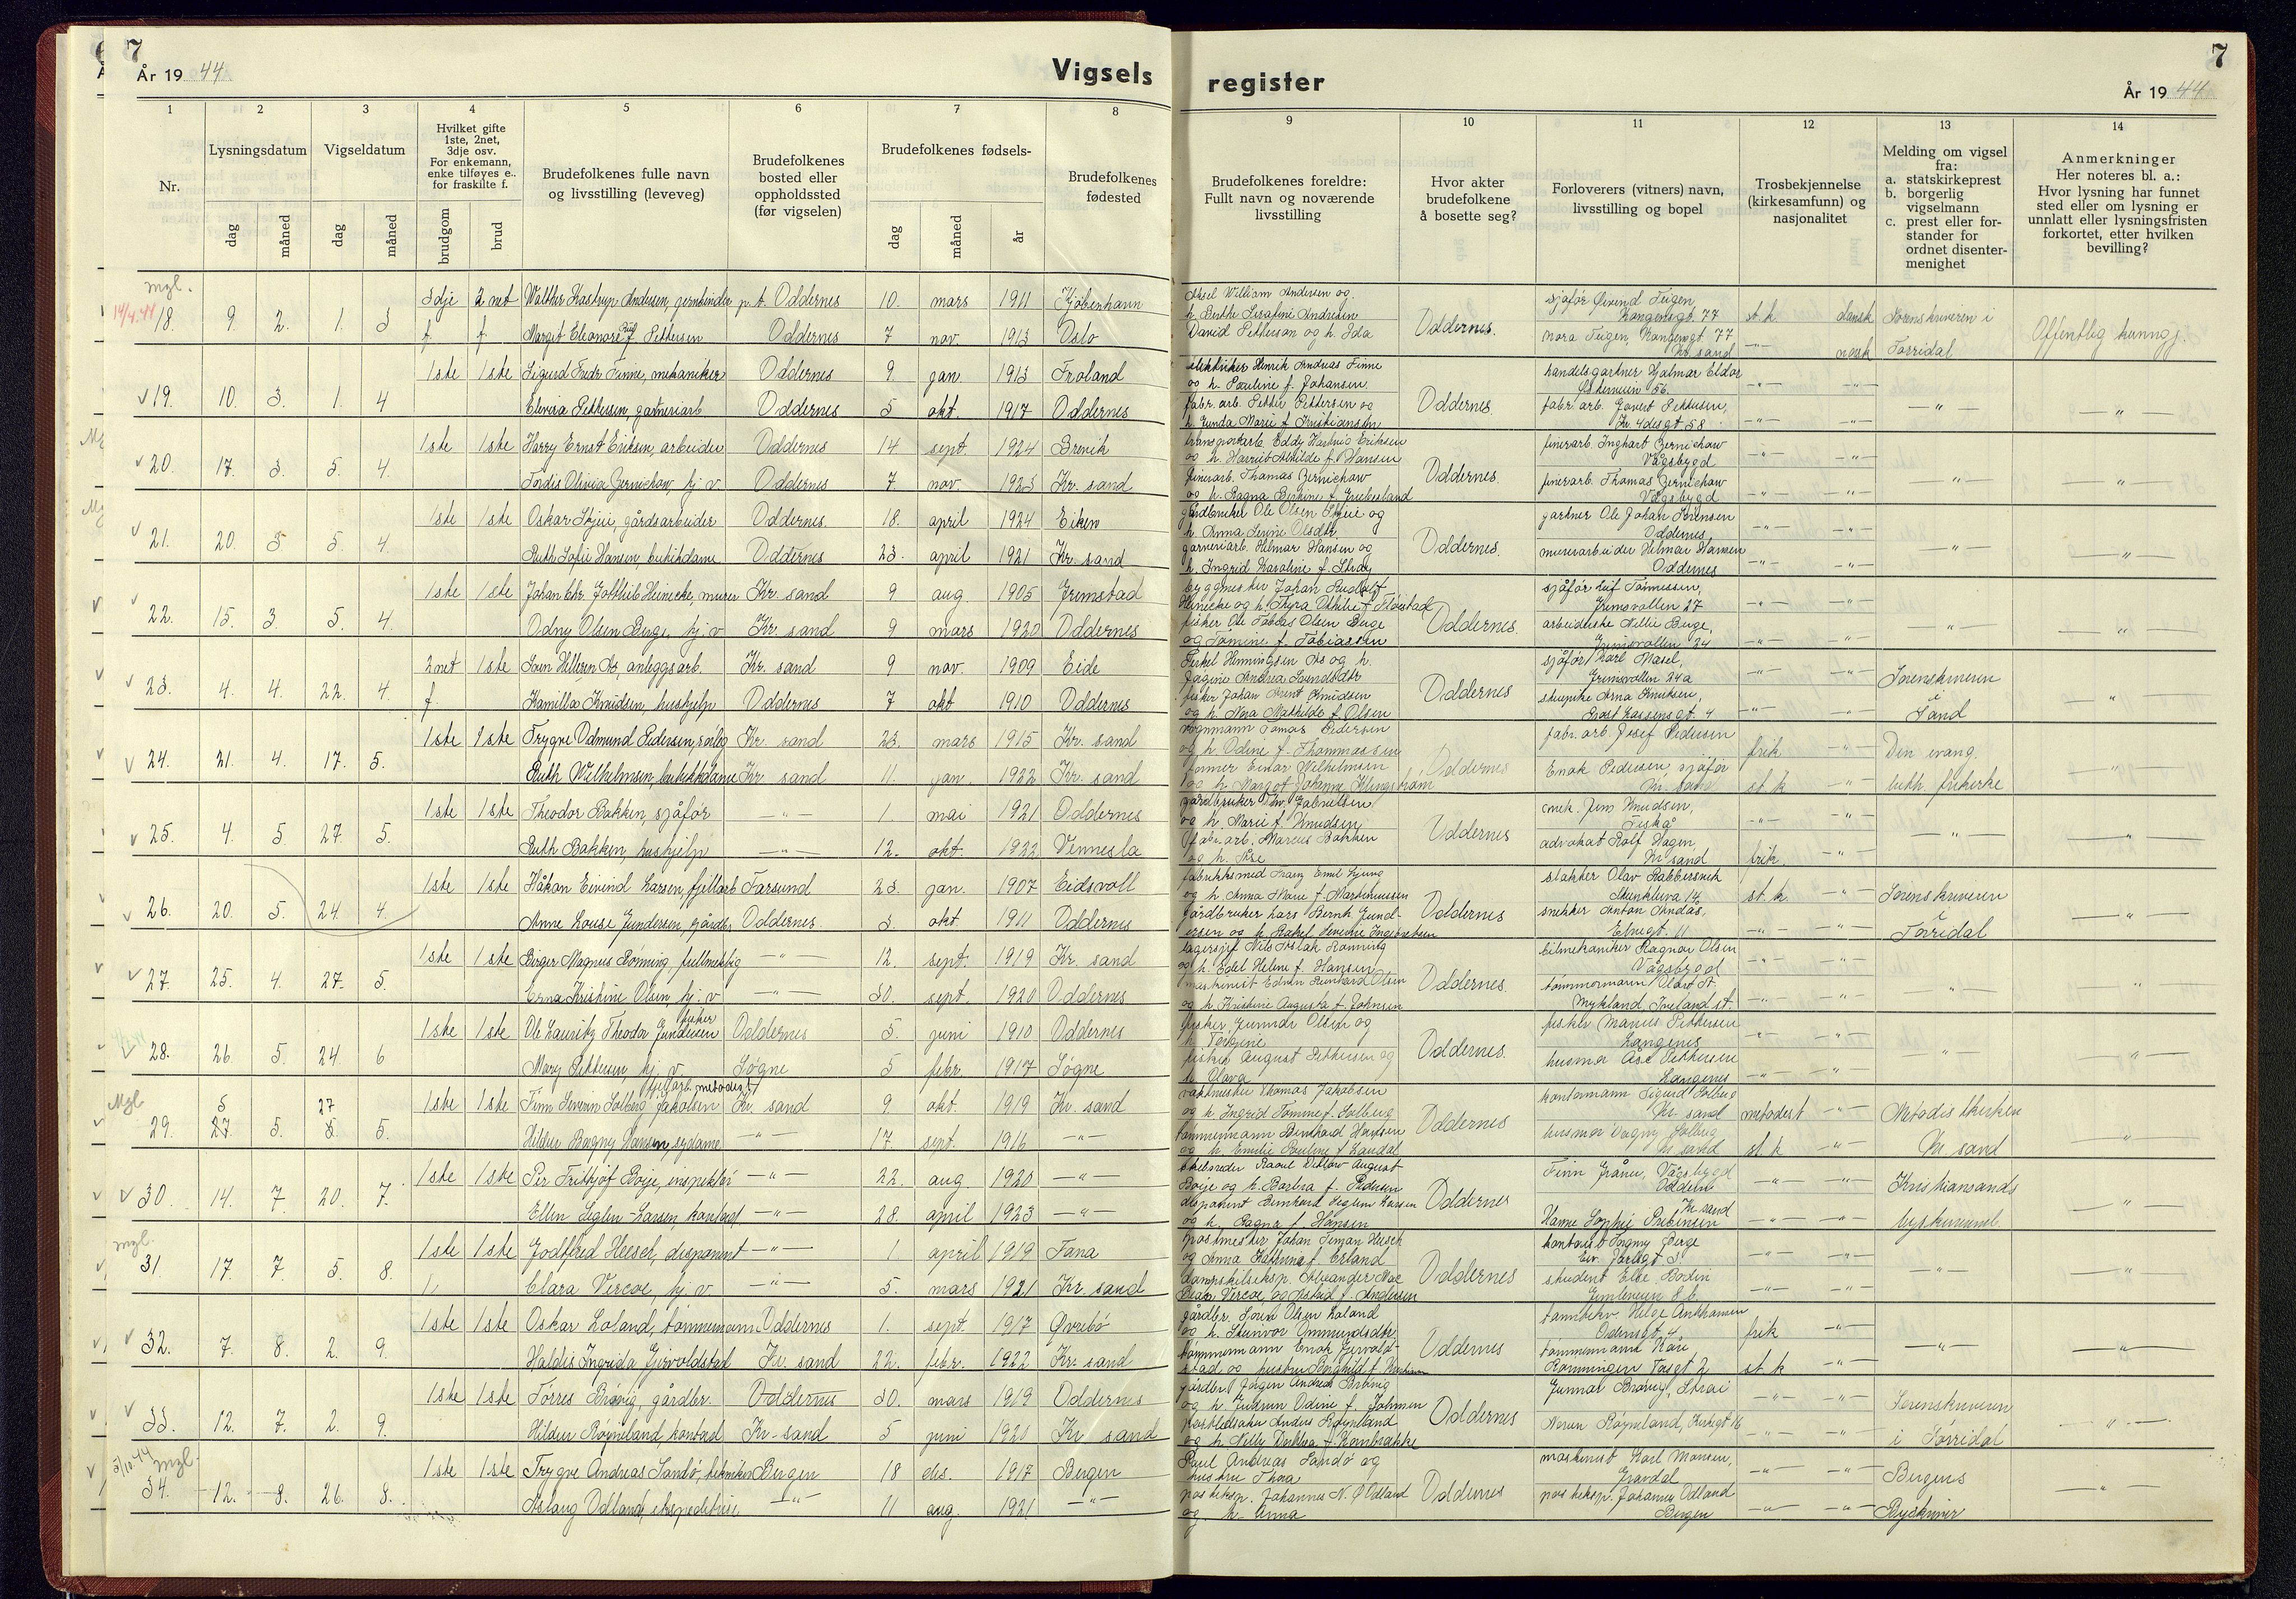 7
År 19 44
Vigsels
register
7
År 19 44
1 2 3 4 5 6 7 8
9 10 11 12 13 14
Nr.
Lysningsdatum
dag måned
Vigseldatum
dag måned
Hvilket gifte
1ste, 2net,
3dje osv.
For enkemann,
enke tilføyes e..
for fraskilte f.
brudgom brud
Brudefolkenes fulle navn
og livsstilling (leveveg)
Brudefolkenes
bosted eller
oppholdssted
(før vigselen)
Brudefolkenes fødsels-
dag måned år
Brudefolkenes
fødested
Brudefolkenes foreldre:
Fullt navn og noværende
livsstilling
Hvor akter
brudefolkene
å bosette seg?
Forloverers (vitners) navn,
livsstilling og bopel
Trosbekjennelse
(kirkesamfunn) og
nasjonalitet
Melding om vigsel
fra:
a. statskirkeprest
b. borgerlig
vigselmann
c. prest eller for-
stander for
ordnet disenter-
menighet
Anmerkninger
Her noteres bl. a.:
Hvor lysning har funnet
sted eller om lysning er
unnlatt eller lysningsfristen
forkortet, etter hvilken
bevilling?
mgl.
18. 9. 2. 1. 3
3dje 2net Walther Kastrup Andersen, jernbinder p.t. Oddernes 10. mars 1911 Kjøbenhavn
f. f. Margit Eleonore Pettersen Oddernes 7 nov. 1913 Oslo
Aksel William Andersen og
h. Berthe Serafine Andersen
David Petterson og h. Ida
Oddernes.
sjåfør Øivind Teigen,
Kongensgt. 77 st.k dansk
Nora Teigen, Kongensgt. 77
Kr. sand norsk
Sorenskriveren i
Torridal
Offentlig kunngj.
19. 10. 3. 1. 4
1ste 1ste Sigurd Fredr. Finne, mekaniker Oddernes 9 jan. 1913 Froland
Elvira Pettersen, gartneriarb Oddernes 5 okt. 1917 Oddernes
elektriker Henrik Andreas Finne
og h. Pauline f. Johansen.
fabr. arb. Petter Pettersen og
h. Gunda Marie f. Kristiansen
Oddernes.
handelsgartner Hjalmar Eldor
Østerveien 56.
fabr. arb. Govert Pettersen,
Kr. 4desgt 58
20. 17. 3. 5. 4.
1ste 1ste Harry Ernst Eriksen, arbeider Oddernes 14 sept. 1924 Brevik
Tordis Olivia Zernichow, hj. v. Oddernes 7 nov. 1923 Kr. sand
transportarb. Eddy Hartvig Eriksen
og h. Harriet Mathilde f. Hansen
finerarb. Thomas Zernichow
og h. Ragna Bertine f. Greibesland
Oddernes.
finerarb. Inghart Zernichow
Vågsbygd
finerarb. Thomas Zernichow
Vågsbygd
21. 20. 3 5. 4.
1ste 1ste Oskar Skjeie, gårdsarbeider Oddernes. 18. april 1924 Eiken
Ruth Sofie Hansen, butikkdame Oddernes 23. april 1921 Kr. sand
gårdbruker Ole Olsen Skjeie og
h. Anna Serine Olsdtr.
garveriarb. Helmar Hansen og
h. Ingrid Karoline f. Stray
Oddernes.
gartner Ole Johan Sørensen
Oddernes,
murerarbeider Helmar Hansen
Oddernes
22. 15. 3. 5. 4.
1ste 1ste Johan Chr. Gottlieb Heinecke, murer Kr. sand 9 aug. 1905 Grimstad
Odny Olsen Berge, hj. v Kr. sand 9 mars 1920 Oddernes
byggmester Johan Rudolf
Heinecke og h. Thyra Othilie f. Fløistad
fisker Ole Tobias Olsen Berge
og Tomine f. Tobiassen
Oddernes.
sjåfør Leif Tønnessen,
Grimsvollen 27
arbeiderske Nellie Berge,
Grimsvollen 24
23. 4. 4. 22. 4.
2net 1ste Sven Helleren Ås, anleggsarb. Kr. sand 9 nov. 1909 Eide
f. Kamilla Knudsen, hushjelp Oddernes 7 okt 1910 Oddernes
Terkel Henningsen Ås og h.
Jagine Andrea Svendsdtr
fisker Johan Arent Knudsen
og h. Nora Mathilde f. Olsen
Oddernes
sjåfør Karl Masel,
Grimsvollen 24a
Arna Knudsen,
Sorenskriveren
i
Sand
24. 21. 4. 17. 5.
1ste 1ste Trygve Odmund Pedersen, Kr. sand 23. mars 1915 Kr. sand
Ruth Wilhelmsen, butikkdame Kr. sand 11. jan. 1922 Kr. sand
vognmann Tomas Pedersen
og h. Odine f. Thommassen
former Einar Wilhelmsen
og h. Margot Johanne Klingstrøm
Oddernes
fabr. arb. Josef Pedersen frik
Enok Pedersen, sjåfør
Kr. sand st. k
Den evang.
luth. frikirke
25. 4. 5 27 5.
1ste 1ste Theodor Bakken, sjåfør 1. mai 1921 Oddernes
Ruth Bakken, hushjelp 12. okt. 1922 Vennesla
gårdbruker Gabrielsen
og h. Marie f. Knudsen
fabr. arb. Marcus Bakken
og h. Åse
Oddernes
mek. Jens Knudsen,
Fiskå
advokat Rolf Hagen,
Kr. sand frik.
26. 20. 5. 24. 4.
1ste 1ste Håkan Eivind Larsen, fjellarb Farsund 23. jan. 1907 Eidsvoll
Anne Louise Gundersen, gårdbr. Oddernes. 3. okt. 1911 Oddernes
og h. Anna Marie f. Martinussen
gårdbruker Lars Bernh. Gund-
ersen og h. Rakel Severine Ingebretsen
Oddernes
Olav Rabbersvik
st. k.
snekker Anton Andås,
Elvegt. 11
Sorenskriveren
i
Torridal
27. 25. 4. 27. 5.
1ste 1ste Birger Magnus Rønning, fullmektig 12. sept. 1919 Kr. sand
Erna Kristine Olsen, hj. v 30. sept. 1920 Oddernes
lagersjef Nils Aslak Rønning
og h. Edel Helene f. Hansen
maskinist Edvin Olsen
og h. Kristine Augusta f. Johnsen
Oddernes.
bilmekaniker Ragnar Olsen
Vågsbygd
tømmermann
Mykland, Iveland st.
28. 26. 5. 24 6
fisker
1ste 1ste Ole Lauritz Theodor Gundersen Oddernes 5. juni 1910 Oddernes
Mary Pettersen, hj. v. Søgne 5 febr. 1917 Søgne
fisker Gunder Olsen og
h. Torgine
fisker August Pettersen og
h. Olava
Oddernes.
fisker Marius Pettersen
Langenes
husmor Åse Pettersen
Langenes
Mgl
5 27
29. 27. 5. 5. 5.
fjellarb. metodist
1ste 1ste Finn Severin Solberg Jakobsen Kr. sand 9. okt. 1919 Kr. sand
Hildur Ragny Hansen, sydame 17. sept. 1916
vaktmester Thomas Jakobsen
og h. Ingrid Tomine f. Solberg
tømmermann Bernhard Hansen
og h. Emilie Pauline f. Laudal
Oddernes
kontormann Sigurd Solberg
Kr. sand metodist
husmor Dagny Solberg
Kr. sand st. k
Metodistkirken
Kr. sand
30. 14. 7 20. 7.
1ste 1ste Per Fritjof Boije, inspektør 22. aug. 1920
Ellen Seglem-Larsen, kontord. 28. april 1923
skibsreder Raoul Detlow August
Boije og h. Borbra f. Pedersen
disponent Bernhard Seglem Larsen
og h. Ragna f. Hansen
Oddernes
Finn Gråner, Vågsbygd
Oddern
Kr. sand
Hanne Sophie Prebensen
Kristiansands
byskriverembd.
mgl.
31. 17. 7. 5. 8.
1ste 1ste Godtfred Heesch, disponent 1. april 1919 Fana
Clara Vercoe, hj. v 5. mars 1921 Kr. sand
postmester Johan Simon Heesch
og Anna Kathrine f. Erland
dampskibseksp. Alexander Mac
Vercoe og Astrid f. Andersen
Oddernes
kontorist Ingmy Berge
Eiv. Jarlsgt 3.
student Else Bodin
Gimleveien 8 b.
32. 7. 8. 2. 9.
1ste 1ste Oskar Loland, tømmermann Oddernes 1. sept. 1917 Øvrebø
Haldis Ingrida Gjervoldstad Kr. sand 22. febr. 1922 Kr. sand
gårdbr. Olsen Loland
og h. Steinvor Ommundsdtr.
tømmermann Enok Gjervold-
stad og hustru Borghild f.
Oddernes
Helge Ankhansen
Odensgt. 4 frik
tømmermann Kåre
Rønningen Torsgt 2 st. k
33. 12. 7. 2. 9.
1ste 1ste Torres Brøvig, gårdbr. Oddernes 30. mars 1919 Oddernes
Hildur Røyneland, kontord. Kr. sand 5 juni 1921 Kr sand
gårdbr. Jørgen Andreas Brøvig
og h. Gudrun Odine f. Johnsen
Anders Røyneland
og h. Nelly Dorthea f. Kornbrekke
Oddernes
Gunnar Brøvig, Strai
Røyneland, Kirkegt 16
Sorenskriveren
i Torridal
5/10.44 mgl.
34. 12. 8. 26. 8.
1ste 1ste Trygve Andreas Sandø, tekniker Bergen 18 des. 1917 Bergen
Aslaug Odland, ekspeditrise. 11 aug. 1921
Paul Andreas Sandø og
hustru Thora
posteksp. Johannes N. Ø Odland
og h. Anna
Oddernes
maskinist Karl Monsen,
Gravdal
posteksp. Johannes Odland
Bergen
Bergens
Byskriver